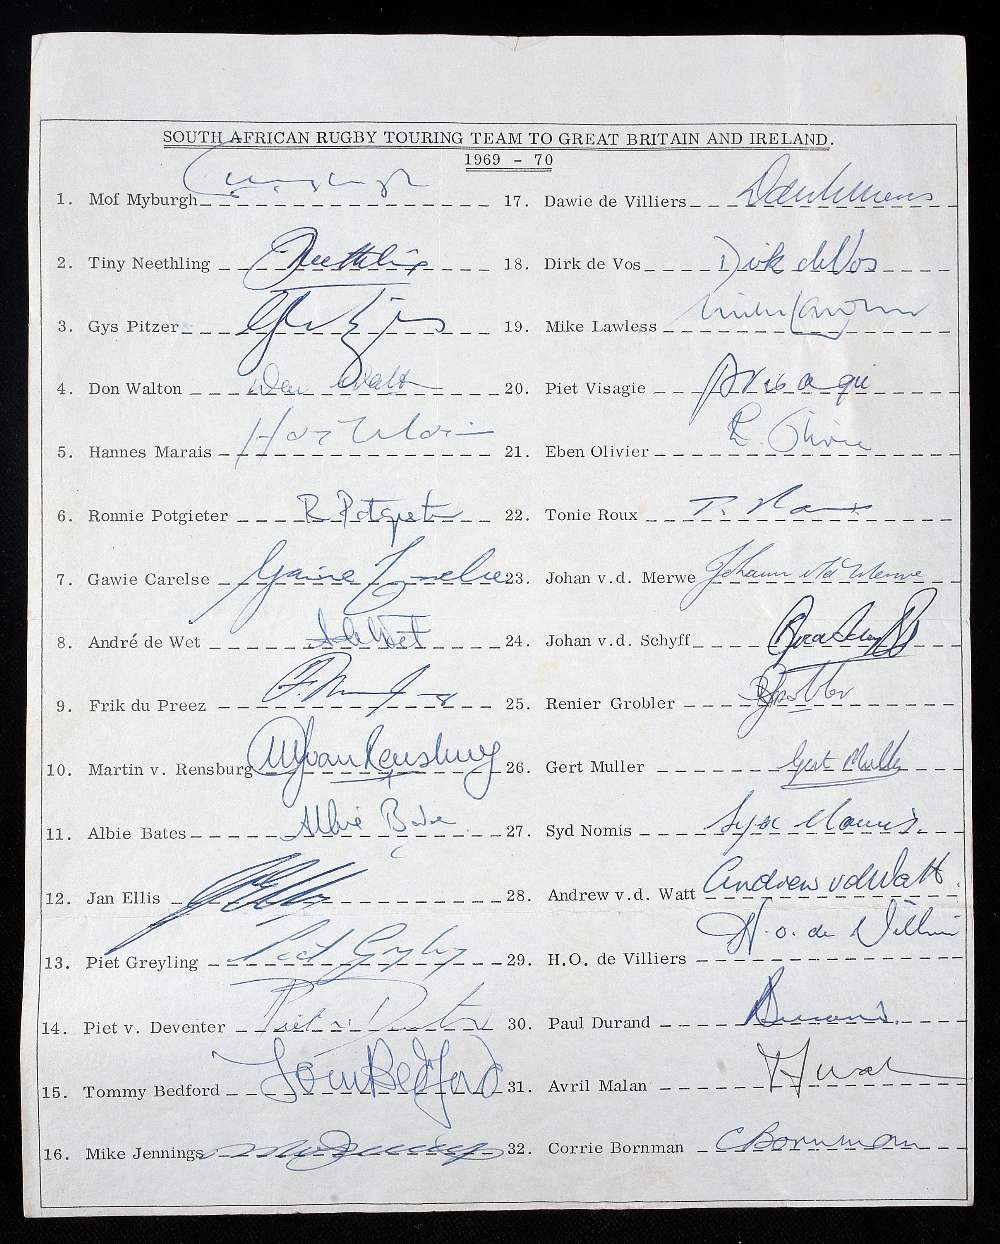 SOUTH AFRICAN RUGBY TOURING TEAM TO GREAT BRITAIN AND IRELAND.
1969 - 70
1. Mof Myburgh
2. Tiny Neethling Neethling
3. Gys Pitzer
4. Don Walton Don Walton
5. Hannes Marais
6. Ronnie Potgieter R Potgieter
7. Gawie Carelse
8. André de Wet A de Wet
9. Frik du Preez
10. Martin v. Rensburg van Rensburg
11. Albie Bates Albie Bates
12. Jan Ellis
13. Piet Greyling Piet Greyling
14. Piet v. Deventer Piet v Deventer
15. Tommy Bedford Tom Bedford
16. Mike Jennings
17. Dawie de Villiers
18. Dirk de Vos Dirk de Vos
19. Mike Lawless
20. Piet Visagie P Visagie
21. Eben Olivier E. Olivier
22. Tonie Roux T. Roux
23. Johan v.d. Merwe Johann vd Merwe
24. Johan v.d. Schyff
25. Renier Grobler R Grobler
26. Gert Muller Gert Muller
27. Syd Nomis Syd Nomis
28. Andrew v.d. Watt Andrew vd Watt.
29. H.O. de Villiers H.O. de Villiers
30. Paul Durand
31. Avril Malan
32. Corrie Bornman C Bornman